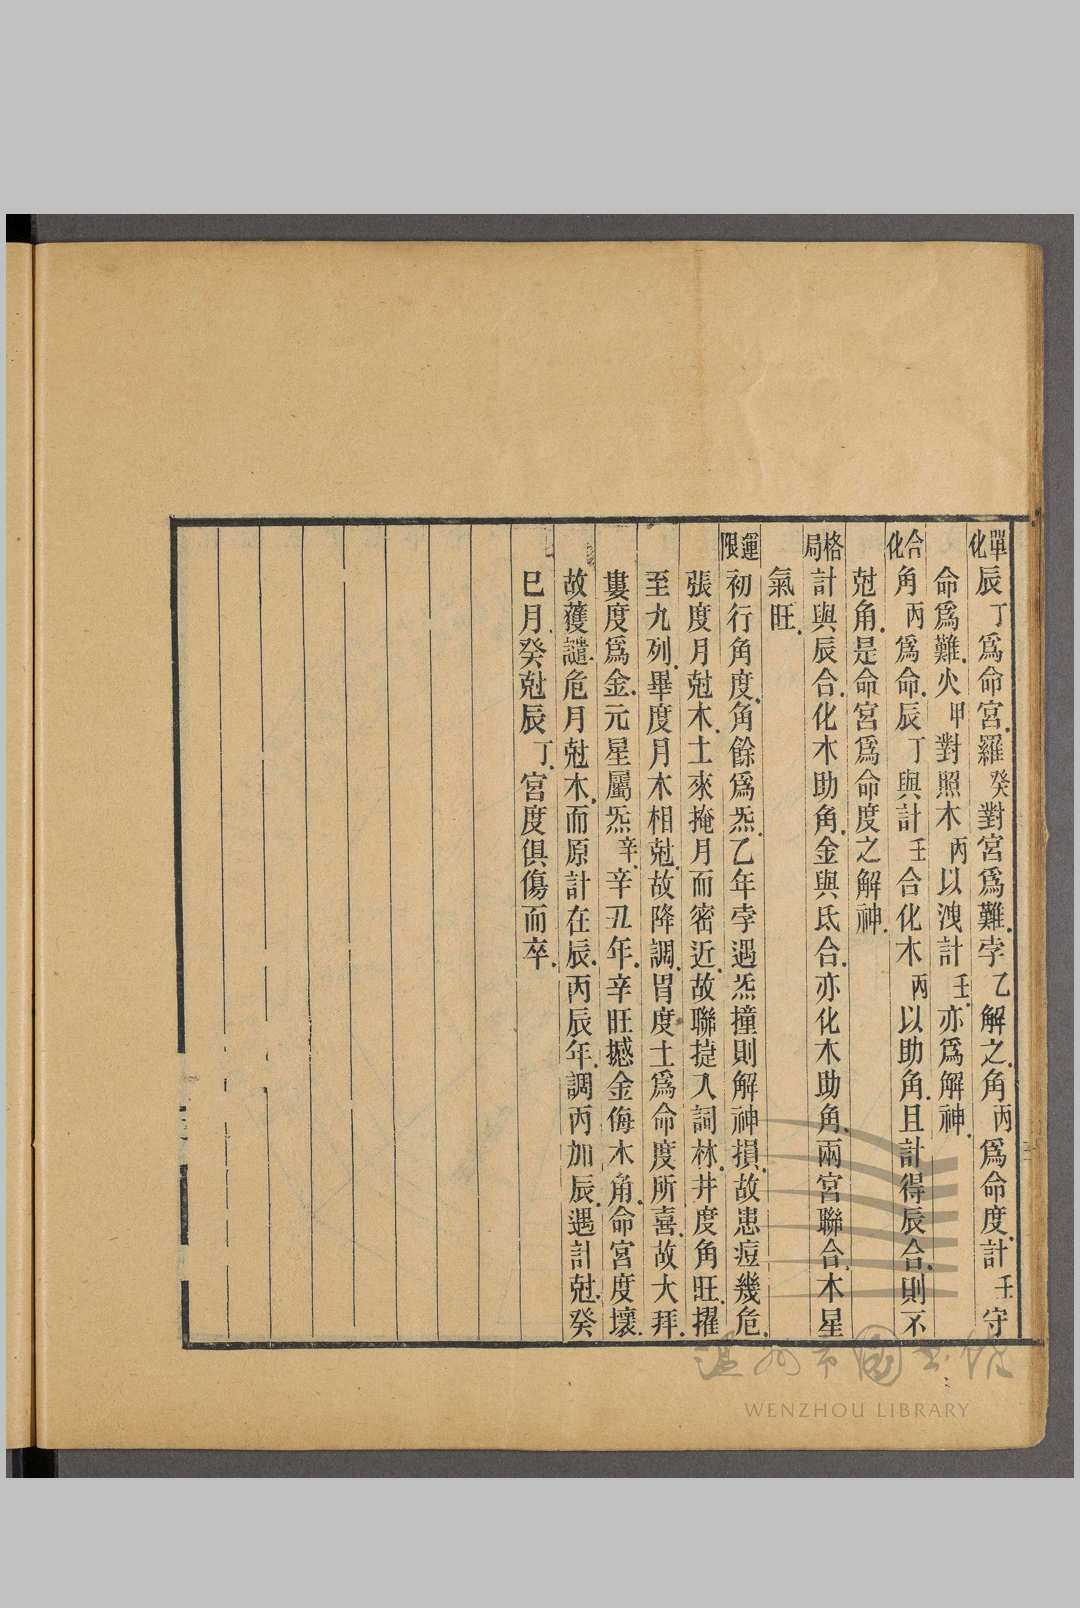 單化辰丁爲命宮羅癸對宮爲難孛乙解之角丙爲命度計壬守
命爲難火甲對照木丙以洩計壬亦爲解神
合化角丙爲命辰丁與計壬合化木丙以助角且計得辰合則不
尅角是命宮爲命度之解神
格局計與辰合化木助角金與氐合亦化木助角兩宮聯合木星
氣旺
運限初行角度角餘爲炁乙年孛遇炁撞則解神損故患痘幾危
張度月尅木土來掩月而密近故聯捷入詞林井度角旺擢
至九列畢度月木相尅故降調胃度土爲命度所喜故大拜
婁度爲金元星屬炁辛辛丑年辛旺撼金侮木角命宮度壞
故獲譴危月尅木而原計在辰丙辰年調丙加辰遇計尅癸
巳月癸尅辰丁宮度俱傷而卒
温州市圖書館
WENZHOU LIBRARY